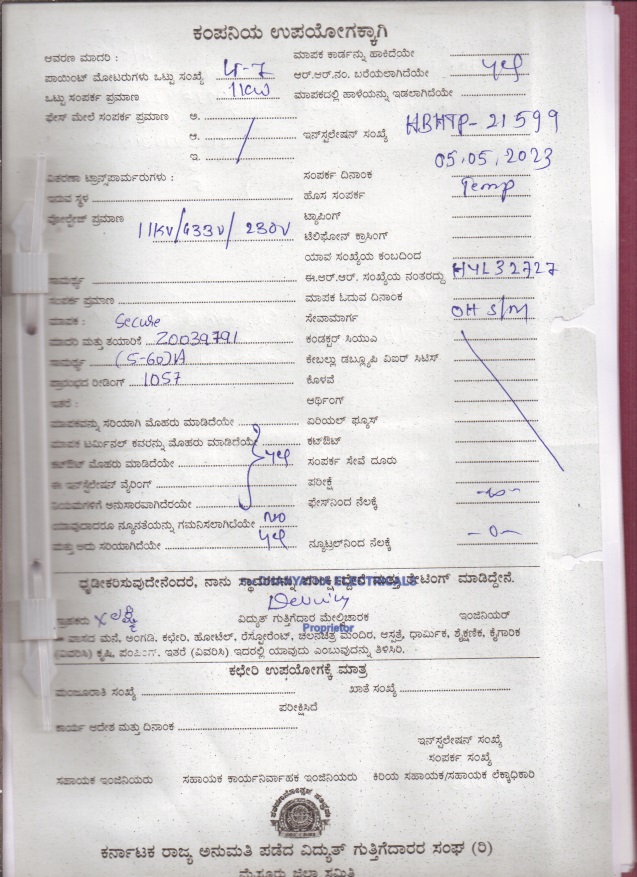 ಕಂಪನಿಯ ಉಪಯೋಗಕ್ಕಾಗಿ
ಆವರಣ ಮಾದರಿ : ಮಾಪಕ ಕಾರ್ಡನ್ನು ಹಾಕಿದೆಯೇ
ಪಾಯಿಂಟ್ ಮೋಟರುಗಳು ಒಟ್ಟು ಸಂಖ್ಯೆ ಆರ್.ಆರ್.ನಂ. ಬರೆಯಲಾಗಿದೆಯೇ yes
ಒಟ್ಟು ಸಂಪರ್ಕ ಪ್ರಮಾಣ 11KW ಮಾಪಕದಲ್ಲಿ ಹಾಳೆಯನ್ನು ಇಡಲಾಗಿದೆಯೇ
ಫೇಸ್ ಮೇಲೆ ಸಂಪರ್ಕ ಪ್ರಮಾಣ ಅ.
ಆ. ಇನ್‌ಸ್ಟಲೇಷನ್ ಸಂಖ್ಯೆ HBHTP-21599
ಇ. 05.05.2023
ವಿತರಣಾ ಟ್ರಾನ್ಸ್‌ಪಾರ್ಮರುಗಳು : ಸಂಪರ್ಕ ದಿನಾಂಕ
ಇರುವ ಸ್ಥಳ ಹೊಸ ಸಂಪರ್ಕ Temp
ವೋಲ್ಟೇಜ್ ಪ್ರಮಾಣ 11KV/433V/230V ಟ್ಯಾಪಿಂಗ್
ಟೆಲಿಫೋನ್ ಕ್ರಾಸಿಂಗ್
ಯಾವ ಸಂಖ್ಯೆಯ ಕಂಬದಿಂದ
ಸಾಮರ್ಥ್ಯ ಈ.ಆರ್.ಆರ್. ಸಂಖ್ಯೆಯ ನಂತರದ್ದು HYL32727
ಸಂಪರ್ಕ ಪ್ರಮಾಣ ಮಾಪಕ ಓದುವ ದಿನಾಂಕ
ಮಾಪಕ : Secure ಸೇವಾಮಾರ್ಗ OH S/M
ಮಾದರಿ ಮತ್ತು ತಯಾರಿಕೆ 20039791 ಕಂಡಕ್ಟರ್ ಸಿಯುಎ
ಸಾಮರ್ಥ್ಯ (5-60)A ಕೇಬಲ್ಲು ಡಬ್ಲ್ಯೂಪಿ ವಿಐರ್ ಸಿಟಿಸ್
ಪ್ರಾರಂಭದ ರೀಡಿಂಗ್ 1057 ಕೊಳವೆ
ಇತರೆ : ಆರ್ಥಿಂಗ್
ಮಾಪಕವನ್ನು ಸರಿಯಾಗಿ ಮೊಹರು ಮಾಡಿದೆಯೇ ಏರಿಯಲ್ ಫ್ಯೂಸ್
ಮಾಪಕ ಟರ್ಮಿನಲ್ ಕವರನ್ನು ಮೊಹರು ಮಾಡಿದೆಯೇ ಕಟ್‌ಔಟ್
ಕಟ್‌ಔಟ್ ಮೊಹರು ಮಾಡಿದೆಯೇ yes ಸಂಪರ್ಕ ಸೇವೆ ದೂರು
ಈ ಇನ್‌ಸ್ಟಲೇಷನ್ ವೈರಿಂಗ್ ಪರೀಕ್ಷೆ
ನಿಯಮಗಳಿಗೆ ಅನುಸಾರವಾಗಿದೆಯೇ ಫೇಸ್‌ನಿಂದ ನೆಲಕ್ಕೆ
ಯಾವುದಾದರೂ ನ್ಯೂನತೆಯನ್ನು ಗಮನಿಸಲಾಗಿದೆಯೇ NO
ಮತ್ತು ಅದು ಸರಿಯಾಗಿದೆಯೇ yes ನ್ಯೂಟ್ರಲ್‌ನಿಂದ ನೆಲಕ್ಕೆ -0-
ಧೃಡೀಕರಿಸುವುದೇನೆಂದರೆ, ನಾನು ಮತ್ತು ತೇಟಿಂಗ್ ಮಾಡಿದ್ದೇನೆ.
ಗ್ರಾಹಕರು ವಿದ್ಯುತ್ ಗುತ್ತಿಗೆದಾರ ಮೇಲ್ವಿಚಾರಕ ಇಂಜಿನಿಯರ್
Proprietor
ವಾಸದ ಮನೆ, ಅಂಗಡಿ, ಕಛೇರಿ, ಹೋಟೆಲ್, ರೆಸ್ಟೋರೆಂಟ್, ಚಲನಚಿತ್ರ ಮಂದಿರ, ಆಸ್ಪತ್ರೆ, ಧಾರ್ಮಿಕ, ಶೈಕ್ಷಣಿಕ, ಕೈಗಾರಿಕ
(ವಿವರಿಸಿ) ಕೃಷಿ, ಇತರೆ (ವಿವರಿಸಿ) ಇದರಲ್ಲಿ ಯಾವುದು ಎಂಬುವುದನ್ನು ತಿಳಿಸಿರಿ.
ಕಛೇರಿ ಉಪಯೋಗಕ್ಕೆ ಮಾತ್ರ
ಮಂಜೂರಾತಿ ಸಂಖ್ಯೆ ಖಾತೆ ಸಂಖ್ಯೆ
ಪರೀಕ್ಷಿಸಿದೆ
ಕಾರ್ಯ ಆದೇಶ ಮತ್ತು ದಿನಾಂಕ
ಇನ್‌ಸ್ಟಲೇಷನ್ ಸಂಖ್ಯೆ
ಸಂಪರ್ಕ ಸಂಖ್ಯೆ
ಸಹಾಯಕ ಇಂಜಿನಿಯರು ಸಹಾಯಕ ಕಾರ್ಯನಿರ್ವಾಹಕ ಇಂಜಿನಿಯರು ಕಿರಿಯ ಸಹಾಯಕ/ಸಹಾಯಕ ಲೆಕ್ಕಾಧಿಕಾರಿ
ಕರ್ನಾಟಕ ರಾಜ್ಯ ಅನುಮತಿ ಪಡೆದ ವಿದ್ಯುತ್ ಗುತ್ತಿಗೆದಾರರ ಸಂಘ (ರಿ)
ಮೈಸೂರು ಜಿಲ್ಲಾ ಸಮಿತಿ